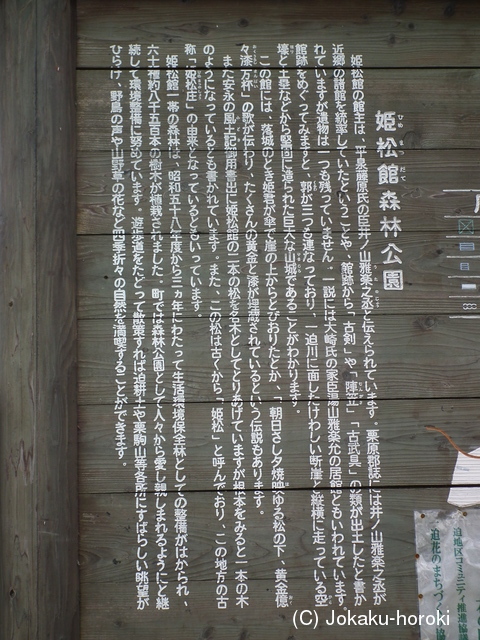 姫松館森林公園
ひめ まつ だて
姫松館の館主は、平泉藤原氏の臣井ノ山雅楽之丞と伝えられています。栗原郡誌には井ノ山雅楽之丞が
近郷の諸館を統率していたということや、館跡から「古剣」や「陣笠」「古武具」の類が出土したと書か
れていますが遺物は一つも残っていません。一説には大崎氏の家臣湯山雅楽允の居館ともいわれています。
館跡をめぐってみますと、郭が三つも連なっており、一迫川に面したけわしい断崖と縦横に走っている空
壕と土塁などから堅固に造られた巨大な山城であることがわかります。
この館には、落城のとき姫君が傘で崖の上からとびおりたとか、「朝日さし夕焼映ゆる松の下、黄金億
々漆万杯」の歌が伝わり、たくさんの黄金と漆が埋蔵されているという伝説もあります。
また安永の風土記御用書出に姫松館の二本の松を名木としてとりあげていますが根本をみると一本の木
のようになっているとも書かれています。また、この松は古くから「姫松」と呼んでおり、この地方の古
称「姫松庄」の由来となっているといっています。
姫松館一帯の森林は、昭和五十八年度から三ヵ年にわたって生活環境保全林としての整備がはかられ、
六十種約八千五百本の樹木が植栽されました。町では森林公園として人々から愛し親しまれるようにと継
続して環境整備に努めています。遊歩道をたどって散策すれば迫耕土や栗駒山等各所にすばらしい眺望が
ひらけ、野鳥の声や山野草の花など四季折々の自然を満喫することができます。
迫地区コミュニティ推進協
迫花のまちづ
(C) Jokaku-horoki